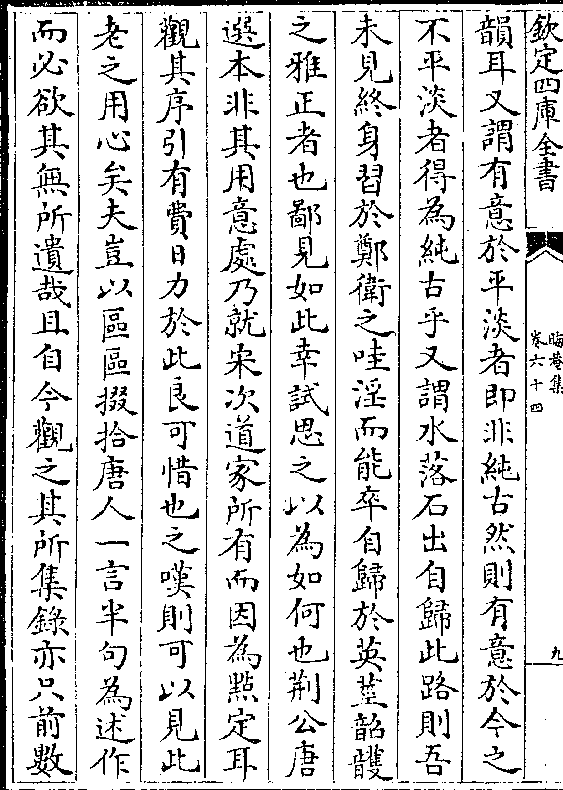 欽定四庫全書
晦菴集
卷六十四
九
韻耳又謂有意於平淡者即非純古然則有意於今之
不平淡者得為純古乎又謂水落石出自歸此路則吾
未見終身習於鄭衛之哇淫而能卒自歸於英莖韶頀
之雅正者也鄙見如此幸試思之以為如何也荆公唐
選本非其用意處乃就宋次道家所有而因為㸃定耳
觀其序引有費日力於此良可惜也之嘆則可以見此
老之用心矣夫豈以區區掇拾唐人一言半句為述作
而必欲其無所遺哉且自今觀之其所集錄亦只前數